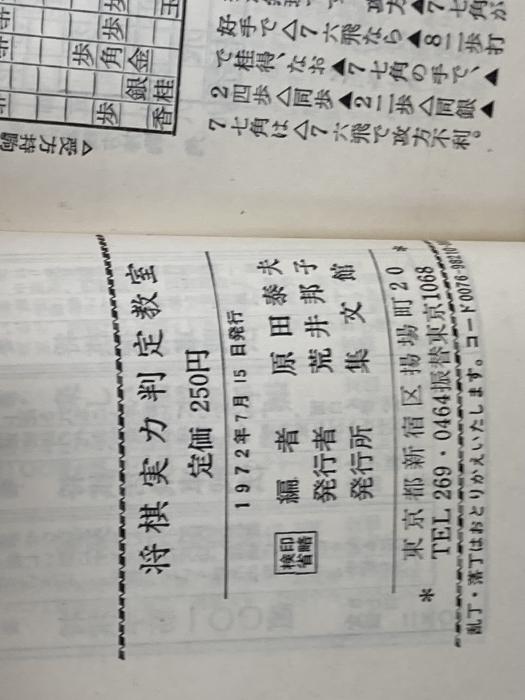 好手で△7六飛なら▲8二歩打
で桂得、なお▲7七角の手で、▲
2四歩△同歩▲2二歩△同銀▲
7七角は△7六飛で攻方不利。
歩
歩角金
銀
歩 香桂
△受方持駒
将棋実力判定教室
定価 250円
1972年7月15日発行
編者 原田泰夫
発行者 荒井邦子
発行所 集文館
検印省略
* 東京都新宿区揚場町20 *
TEL 269・0464振替東京1068
乱丁・落丁はおとりかえいたします。コード0076-98210